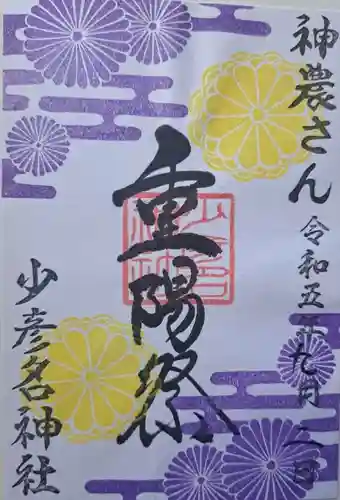 神農さん
令和五年九月二日
重陽祭
少彦名神社